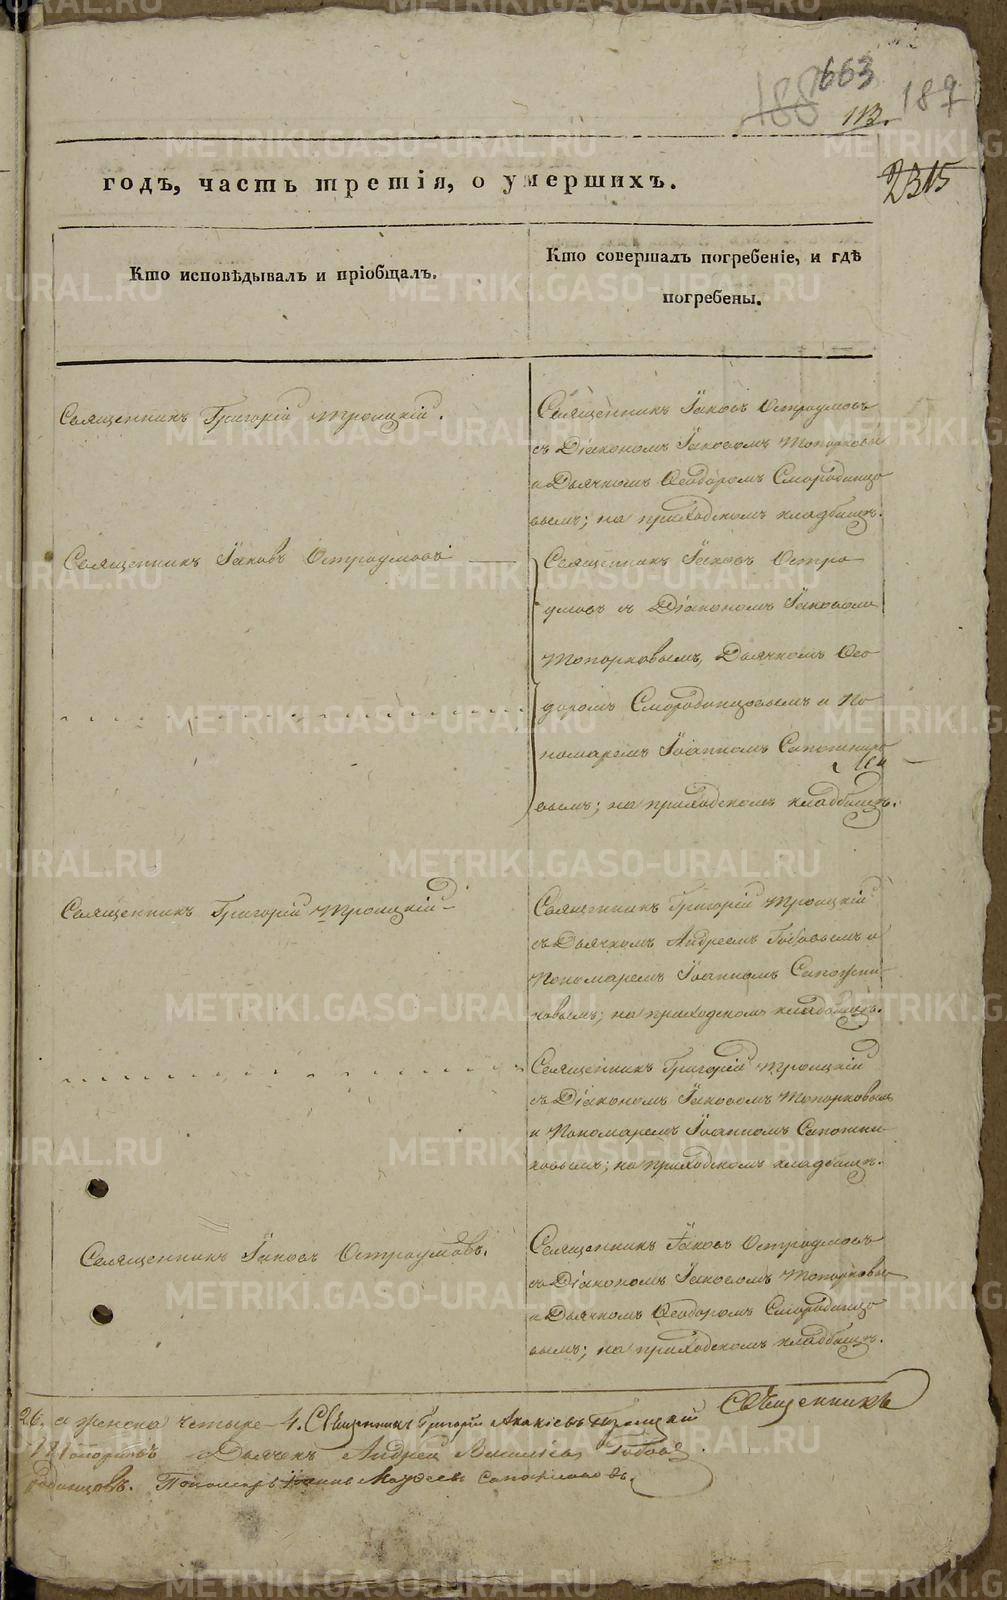 663
188 113. 187
2315
годъ, часть третія, о умершихъ.
Кто исповѣдывалъ и пріобщалъ.
Кто совершалъ погребеніе, и гдѣ
погребены.
Священникъ Григорій Троицкій.
Священникъ Іаковъ Остроумовъ
съ Діакономъ Іаковомъ Топорковы
и Дьячкомъ Ѳеодоромъ Смородинцо
вымъ; на приходскомъ кладбищѣ.
Священникъ Іаковъ Остроумовъ
Священникъ Іаковъ Остро
умовъ съ Діакономъ Іаковомъ
Топорковымъ, Дьячкомъ Ѳео
доромъ Смородинцовымъ и По
номаремъ Іоанномъ Сапожнико
вымъ; на приходскомъ кладбищѣ.
Священникъ Григорій Троицкій
Священникъ Григорій Троицкій
съ Дьячкомъ Андреемъ Бобовымъ и
Пономаремъ Іоанномъ Сапожни-
ковымъ; на приходскомъ кладбищѣ.
Священникъ Григорій Троицкій
съ Діакономъ Іаковомъ Топорковым
и Пономаремъ Іоанномъ Сапожни-
ковымъ; на приходскомъ кладбищѣ.
Священникъ Іаковъ Остроумовъ.
Священникъ Іаковъ Остроумовъ
съ Діакономъ Іаковомъ Топорковы
и Дьячкомъ Ѳеодоромъ Смородинцо
вымъ; на приходскомъ кладбищѣ.
Священникъ
26. а женска четыре - 4. Священникъ Григорій Троицкій
Топорковъ Дьячекъ Андрей
родинцовъ. Пономарь Іоаннъ
METRIKI.GASO-URAL.RU